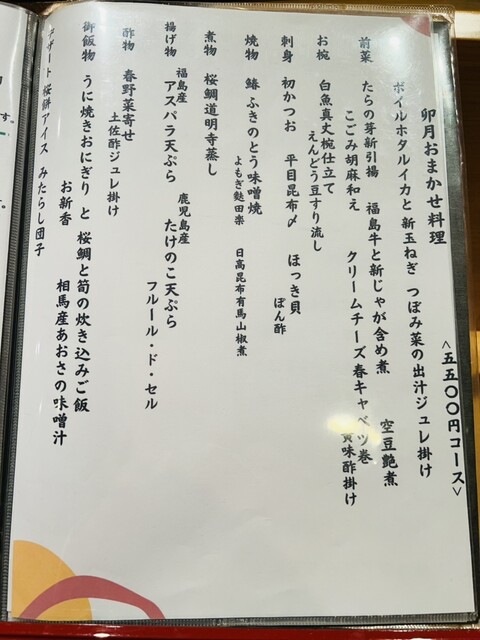 卯月おまかせ料理
＜五五〇〇円コース＞
前菜 ボイルホタルイカと新玉ねぎ つぼみ菜の出汁ジュレ掛け
たらの芽新引揚 福島牛と新じゃが含め煮 空豆艶煮
こごみ胡麻和え クリームチーズ春キャベツ巻 黄味酢掛け
お椀 白魚真丈椀仕立て
えんどう豆すり流し
刺身 初かつお 平目昆布〆 ほっき貝
ぽん酢
焼物 鰆ふきのとう味噌焼
よもぎ麩田楽 日高昆布有馬山椒煮
煮物 桜鯛道明寺蒸し
揚げ物 福島産アスパラ天ぷら 鹿児島産たけのこ天ぷら
フルール・ド・セル
酢物 春野菜寄せ
土佐酢ジュレ掛け
御飯物 うに焼きおにぎり と 桜鯛と筍の炊き込みご飯
お新香 相馬産あおさの味噌汁
デザート 桜餅アイス みたらし団子